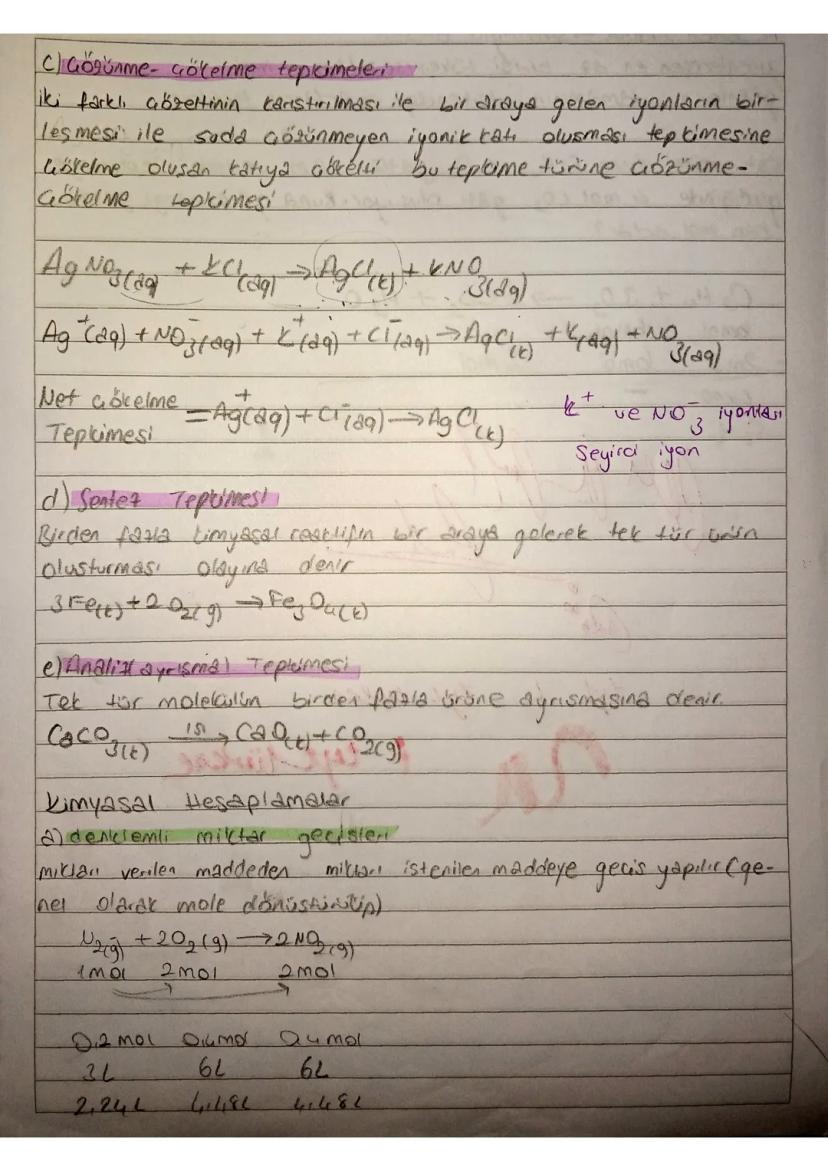 c) Çözünme-Çökelme tepkimeleri
iki farklı çözeltinin karıştırılması ile bir araya gelen iyonların bir-
leşmesi ile suda çözünmeyen iyonik katı oluşması tepkimesine
Çökelme oluşan katıya çökelti bu tepkime türüne çözünme-
Çökelme tepkimesi
AgNO₃(aq) + KCl(aq) → AgCl(k) + KNO₃(aq)
Ag⁺(aq) + NO₃⁻(aq) + K⁺(aq) + Cl⁻(aq) → AgCl(k) + K⁺(aq) + NO₃⁻(aq)
Net Çökelme Tepkimesi = Ag⁺(aq) + Cl⁻(aq) → AgCl(k)
K⁺ ve NO₃⁻ iyonları
Seyirci iyon
d) Sentez Tepkimesi
Birden fazla kimyasal reaktifin bir araya gelerek tek tür ürün
oluşturması olayına denir
3Fe(k) + 2O₂(g) → Fe₃O₄(k)
e) Analiz ayrışma) Tepkimesi
Tek tür molekülün birden fazla ürüne ayrışmasına denir.
CaCO₃(k) ısı→ CaO(k) + CO₂(g)
Kimyasal Hesaplamalar
a) denklemli miktar geçişleri
miktarı verilen maddeden miktarı istenilen maddeye geçiş yapılır (ge-
nel olarak mole dönüştürülüp)
N₂(g) + 2O₂(g) → 2NO₂(g)
1mol 2mol 2mol
0,2 mol 0,4mol 0,4mol
3L 6L 6L
2,24L 4,48L 4,48L